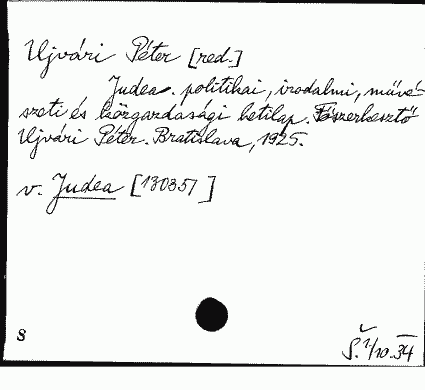 Ujvári Péter [red.]
Judea. politikai, irodalmi, művé-
szeti és közgazdasági hetilap. Főszerkesztő
Ujvári Péter. Bratislava, 1925.
v. Judea [130357]
8